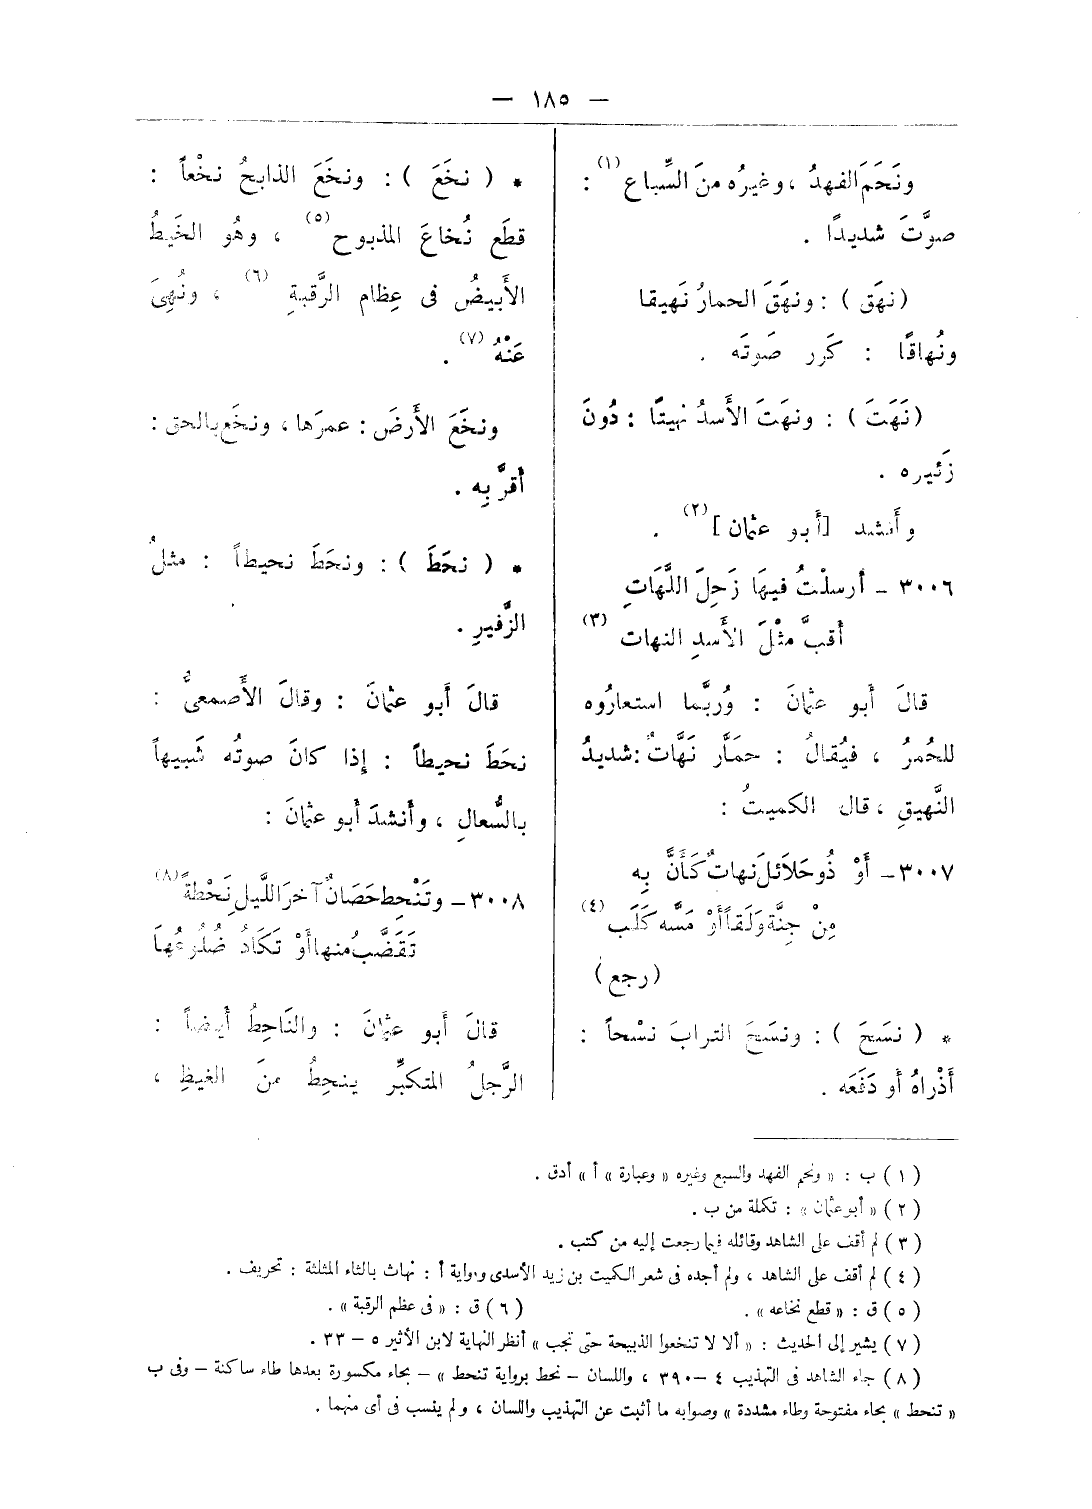 — ١٨٥ —
ونَحَمَ الفهدُ ، وغيرُه منَ السِّباع (١) :
صوَّتَ شديدًا .
(نهَق ) : ونهَقَ الحمارُ نَهيقا
ونُهاقًا : كَرر صَوتَه .
(نَهَتَ ) : ونهَتَ الأسدُ نهيتًا : دُونَ
زَئيره .
وأَنشد [أَبو عثمان] (٢) .
٣٠٠٦ – أرسلْتُ فيهَا زَحِلَ اللَّهَاتِ
أَقبَّ مثْلَ الأَسدِ النهات (٣)
قالَ أَبو عثمانَ : وُربَّما استعارُوه
للحُمرُ ، فيُقالُ : حمَار نَهَّاتٌ : شديدُ
النَّهيقِ ، قال الكميتُ :
٣٠٠٧ – أَوْ ذُو حَلاَئل نهاتٌ كَأَنَّ بِه
مِنْ جِنَّة وَلَقاً أَوْ مَسَّه كَلَب (٤)
(رجع)
* ( نسَحَ ) : ونسَحَ الترابَ نسْحاً :
أَذْراهُ أو دَفَعَه .
* ( نخَعَ ) : ونخَعَ الذابحُ نخْعاً :
قطَع نُخاعَ المذبوح (٥) ، وهُو الخَيطُ
الأَبيضُ فى عِظام الرَّقبةِ (٦) ، ونُهِىَ
عَنْهُ (٧) .
ونخَعَ الأَرضَ : عمرَها ، ونخَع بالحق :
أقرَّ بِه .
* ( نحَطَ ) : ونحَطَ نحيطاً : مثلُ
الزَّفيرِ .
قالَ أَبو عثمانَ : وقالَ الأَصمعىُّ :
نحَطَ نحيطاً : إِذا كانَ صوتُه شَبيهاً
بالسُّعالِ ، وأَنشدَ أَبو عثمانَ :
٣٠٠٨ – وتَنْحِط حَصَانٌ آخرَ اللَّيلِ نَحْطةً (٨)
تَقَضَّبُ منها أوْ تَكَادُ ضُلُوعُها
قالَ أَبو عثمانَ : والنَاحِطُ أَيضاً :
الرَّجلُ المتكبِّر ينحِطُ منَ الغيظِ ،
( ١ ) ب : « ونحم الفهد والسبع وغيره « وعبارة » أ » أدق .
( ٢ ) « أبو عثمان » : تكملة من ب .
( ٣ ) لم أقف على الشاهد وقائله فيما رجعت إليه من كتب .
( ٤ ) لم أقف على الشاهد ، ولم أجده فى شعر الكميت بن زيد الأسدى ورواية أ : نهاث بالثاء المثلثة : تحريف .
( ٥ ) ق : « قطع نخاعه » . ( ٦ ) ق : « فى عظم الرقبة » .
( ٧ ) يشير إلى الحديث : « ألا لا تنخعوا الذبيحة حتى تجب » أنظر النهاية لابن الأثير ٥ – ٣٣ .
( ٨ ) جاء الشاهد فى التهذيب ٤ – ٣٩٠ ، واللسان – نحط برواية تنحط » – بحاء مكسورة بعدها طاء ساكنة – وفى ب
« تنحط » بحاء مفتوحة وطاء مشددة » وصوابه ما أثبت عن التهذيب واللسان ، ولم ينسب فى أى منهما .